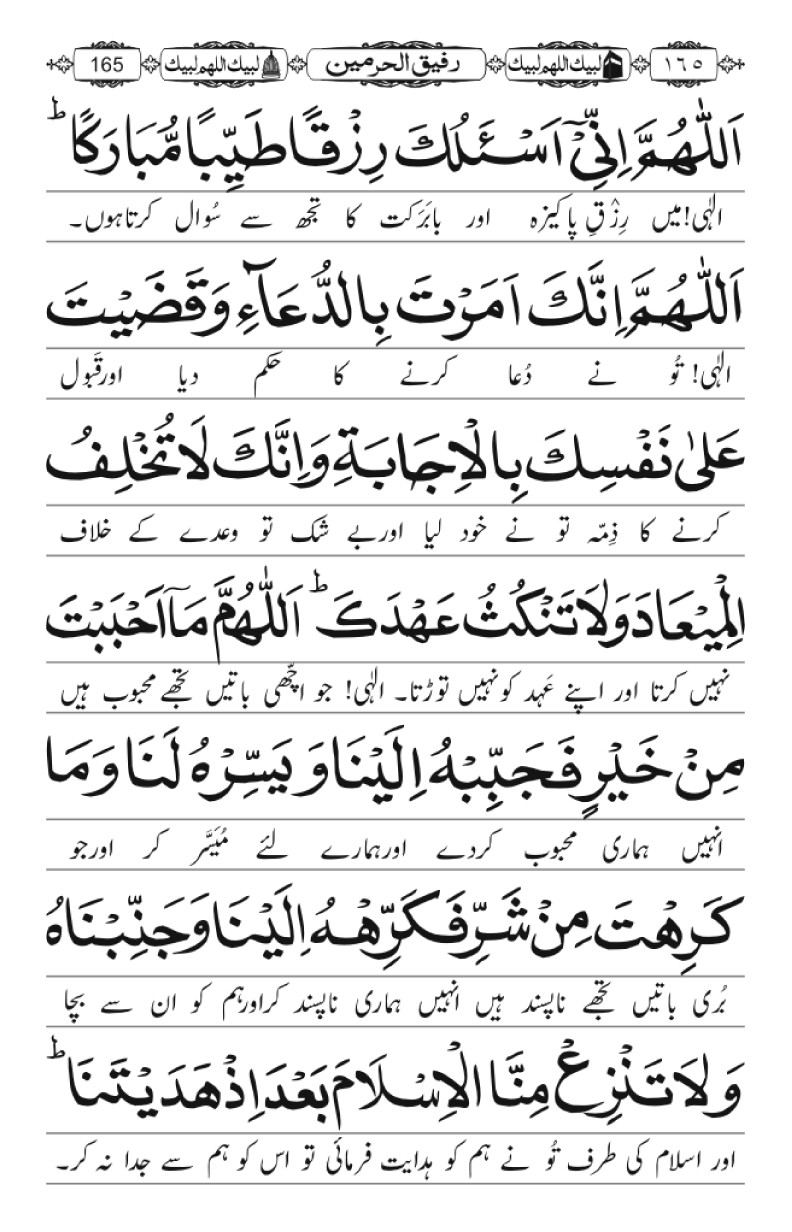 ١٦٥ لبيك اللهم لبيك رفیق الحرمین لبيك اللهم لبيك 165
اَللّٰهُمَّ اِنِّیْٓ اَسْئَلُكَ رِزْقًا طَیِّبًا مُّبَارَكًا ؕ
الٰہی!میں رِزْقِ پاکیزہ اور بابَرَکت کا تجھ سے سُوال کرتاہوں۔
اَللّٰهُمَّ اِنَّكَ اَمَرْتَ بِالدُّعَآءِ وَقَضَیْتَ
الٰہی! تُو نے دُعا کرنے کا حکم دیا اورقَبول
عَلٰی نَفْسِكَ بِالْاِجَابَةِ وَاِنَّكَ لَا تُخْلِفُ
کرنے کا ذِمّہ تو نے خود لیا اوربے شک تو وعدے کے خلاف
الْمِیْعَادَ وَلَا تَنْكُثُ عَهْدَكَ ؕ اَللّٰهُمَّ مَآ اَحْبَبْتَ
نہیں کرتا اور اپنے عَہد کونہیں توڑتا۔ الٰہی! جو اچّھی باتیں تجھے محبوب ہیں
مِنْ خَیْرٍ فَحَبِّبْهُ اِلَیْنَا وَ یَسِّرْهُ لَنَا وَمَا
انہیں ہماری محبوب کردے اورہمارے لئے مُیَسَّر کر اورجو
كَرِهْتَ مِنْ شَرٍّ فَكَرِّهْهُ اِلَیْنَا وَجَنِّبْنَاهُ
بُری باتیں تجھے ناپسند ہیں انہیں ہماری ناپسند کراورہم کو ان سے بچا
وَلَا تَنْزِعْ مِنَّا الْاِسْلَامَ بَعْدَ اِذْ هَدَیْتَنَا ؕ
اور اسلام کی طرف تُو نے ہم کو ہدایت فرمائی تو اس کو ہم سے جدا نہ کر۔